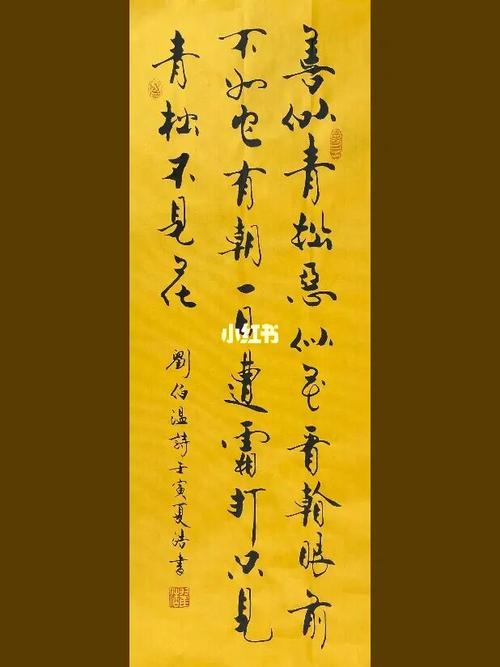 善似青松惡似花看翰眼前
不如它有朝一日遭霜打只見
青松不見花
劉伯温詩壬寅夏浩書
小红书